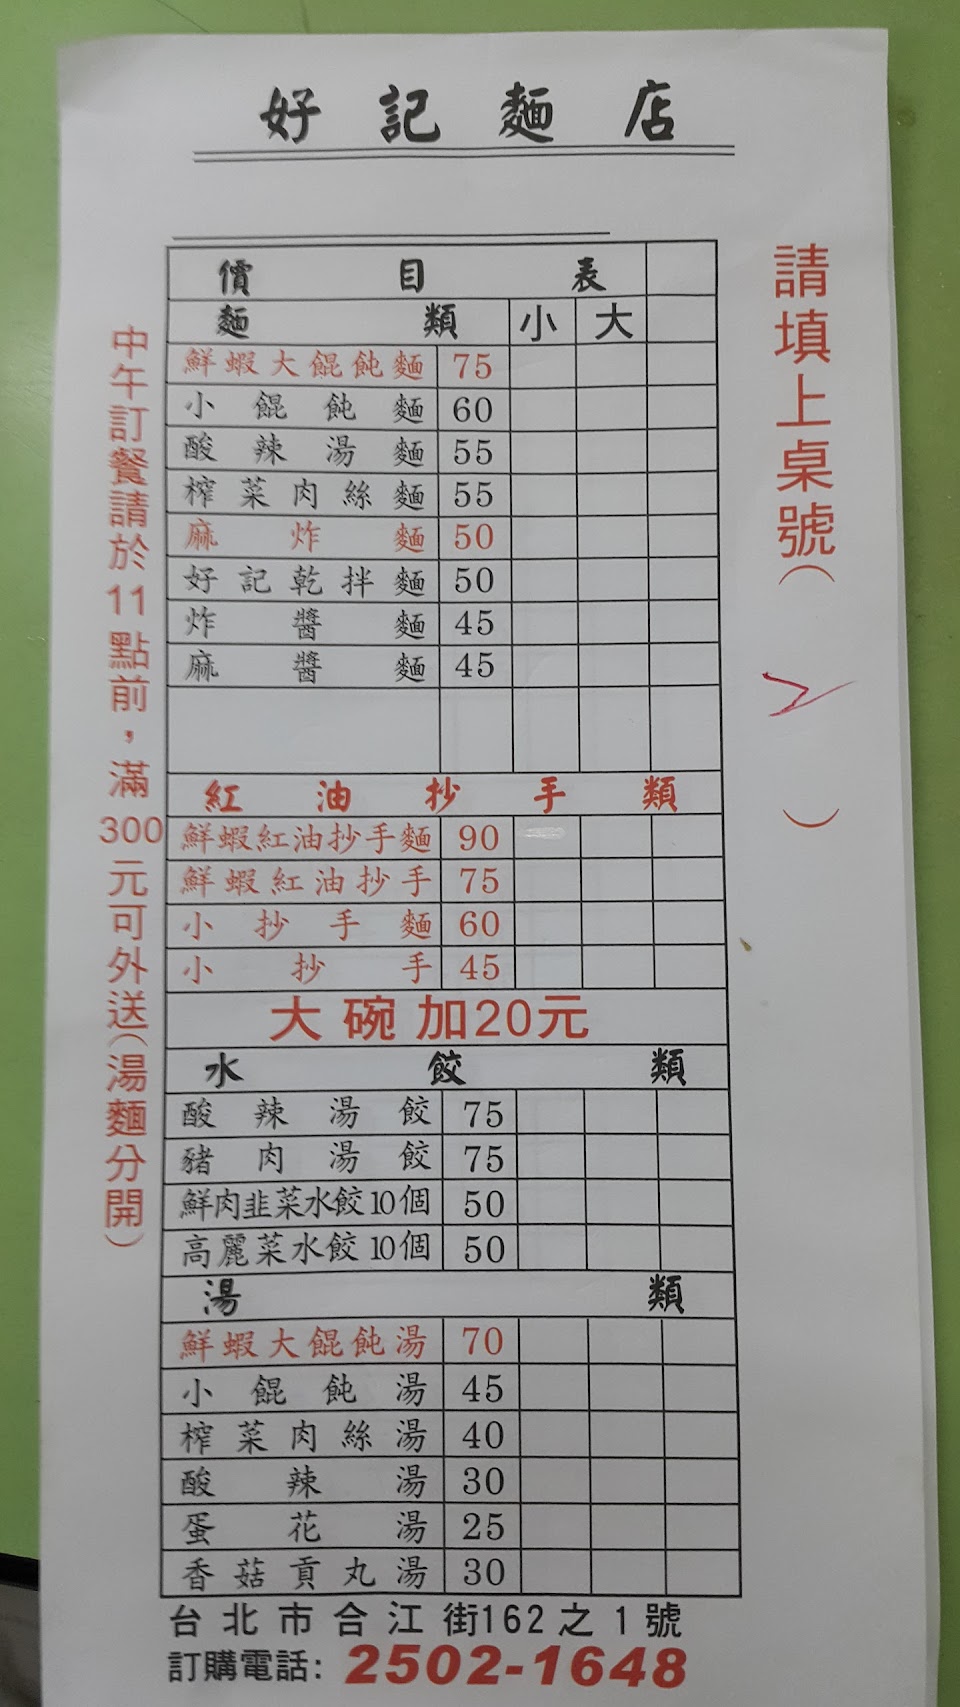 好記麵店
價目表
麵類 小 大
鮮蝦大餛飩麵 75
小餛飩麵 60
酸辣湯麵 55
榨菜肉絲麵 55
麻炸麵 50
好記乾拌麵 50
炸醬麵 45
麻醬麵 45
紅油抄手類
鮮蝦紅油抄手麵 90
鮮蝦紅油抄手 75
小抄手麵 60
小抄手 45
大碗加20元
水餃類
酸辣湯餃 75
豬肉湯餃 75
鮮肉韭菜水餃10個 50
高麗菜水餃10個 50
湯類
鮮蝦大餛飩湯 70
小餛飩湯 45
榨菜肉絲湯 40
酸辣湯 30
蛋花湯 25
香菇貢丸湯 30
台北市合江街162之1號
訂購電話: 2502-1648
請填上桌號( 2 )
中午訂餐請於11點前，滿300元可外送(湯麵分開)